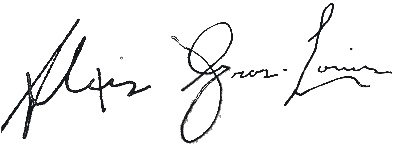 Alexis Gros-Louis